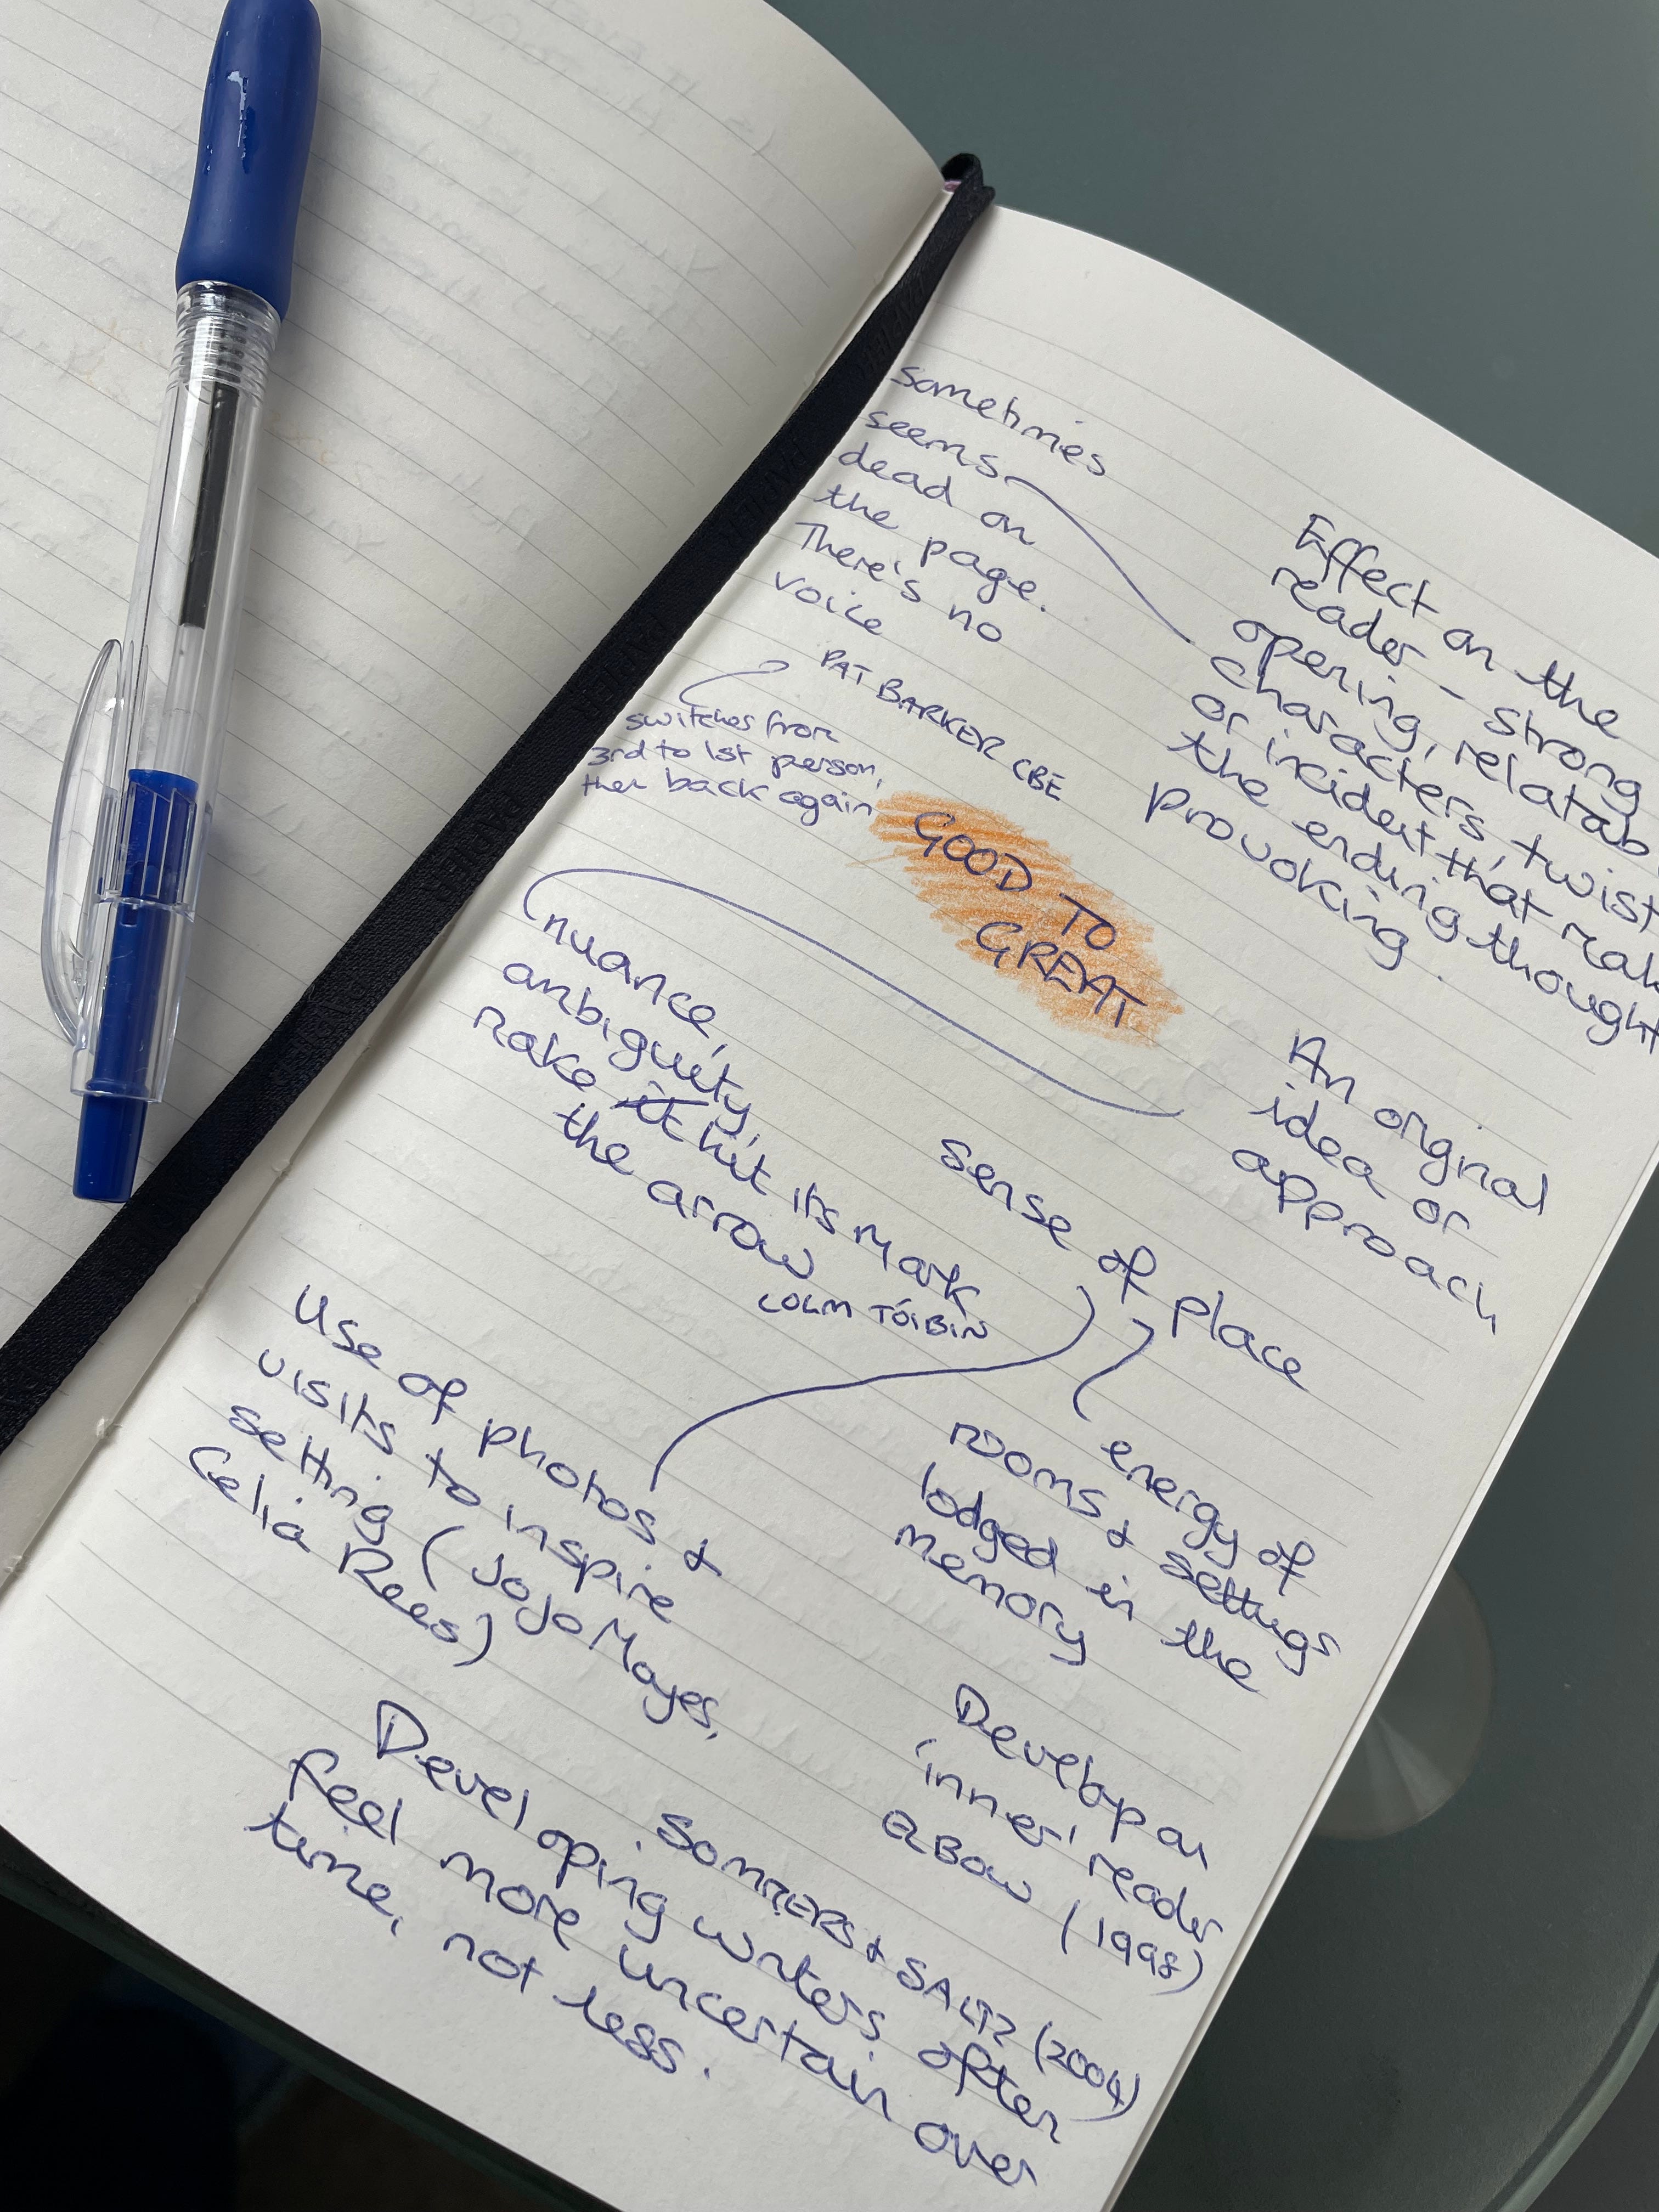 Sometimes
seems
dead on
the page.
There's no
voice
PAT BARKER CBE
switches from
3rd to 1st person,
then back again
Effect on the
reader - strong
opening, relatab
characters, twist
or incident that
the ending thought
provoking.
GOOD TO
GREAT
nuance,
ambiguity,
it hit its mark
the arrow
COLM TÓIBÍN
An original
idea or
approach
Sense of place
Use of photos &
visits to inspire
setting (JoJo Moyes,
Celia Rees)
energy of
rooms & settings
lodged in the
memory
Develop an
'inner' reader
ELBOW (1998)
SOMMERS & SALTZ (2004)
Developing writers often
feel more uncertain over
time, not less.